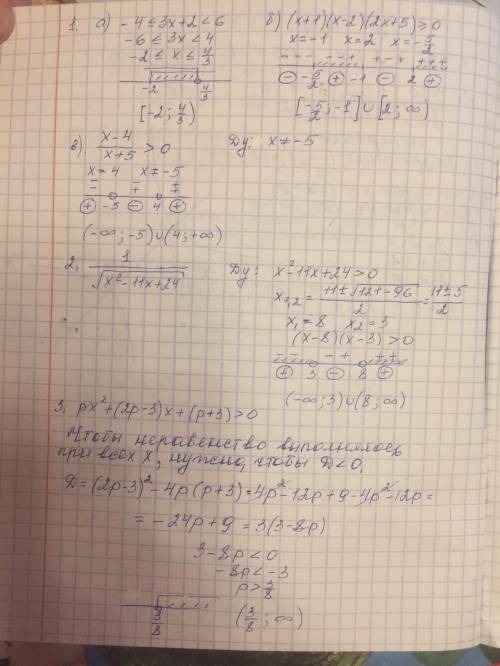 1. а) -4 ≤ 3x+2 < 6
-6 ≤ 3x < 4
-2 ≤ x ≤ 4/3
-2 4/3
[-2; 4/3)
б) (x+1)(x-2)(2x+5) ≥ 0
x=-1 x=2 x=-5/2
--- --+ +-+ +++
⊖ -5/2 ⊕ -1 ⊖ 2 ⊕
[-5/2; -1] ∪ [2; ∞)
в) (x-4)/(x+5) > 0 Ду: x ≠ -5
x=4 x≠-5
⊕ -5 ⊖ 4 ⊕
(-∞; -5) ∪ (4; +∞)
2. 1/√(x²-11x+24) Ду: x²-11x+24 > 0
x₁,₂ = (11±√(121-96))/2 = (11±5)/2
x₁=8 x₂=3
(x-8)(x-3) > 0
-- -+ ++
⊕ 3 ⊖ 8 ⊕
(-∞; 3) ∪ (8; ∞)
3. px²+(2p-3)x+(p+3) > 0
Чтобы неравенство выполнялось
при всех x, нужно, чтобы D<0.
D = (2p-3)² - 4p(p+3) = 4p² - 12p + 9 - 4p² - 12p =
= -24p + 9 = 3(3-8p)
3-8p < 0
-8p < -3
p > 3/8
3/8 (3/8; ∞)